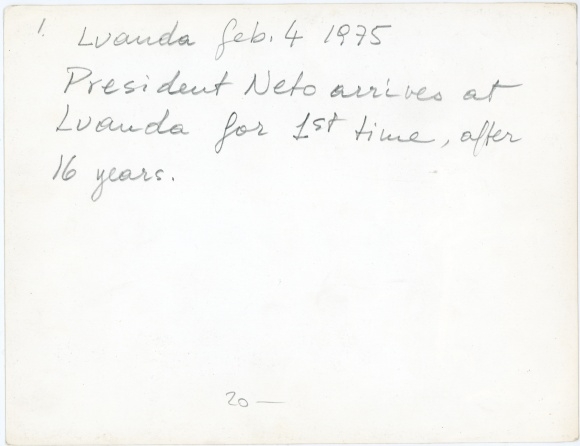 1.
Luanda Feb. 4 1975
President Neto arrives at
Luanda for 1st time, after
16 years.
20 —